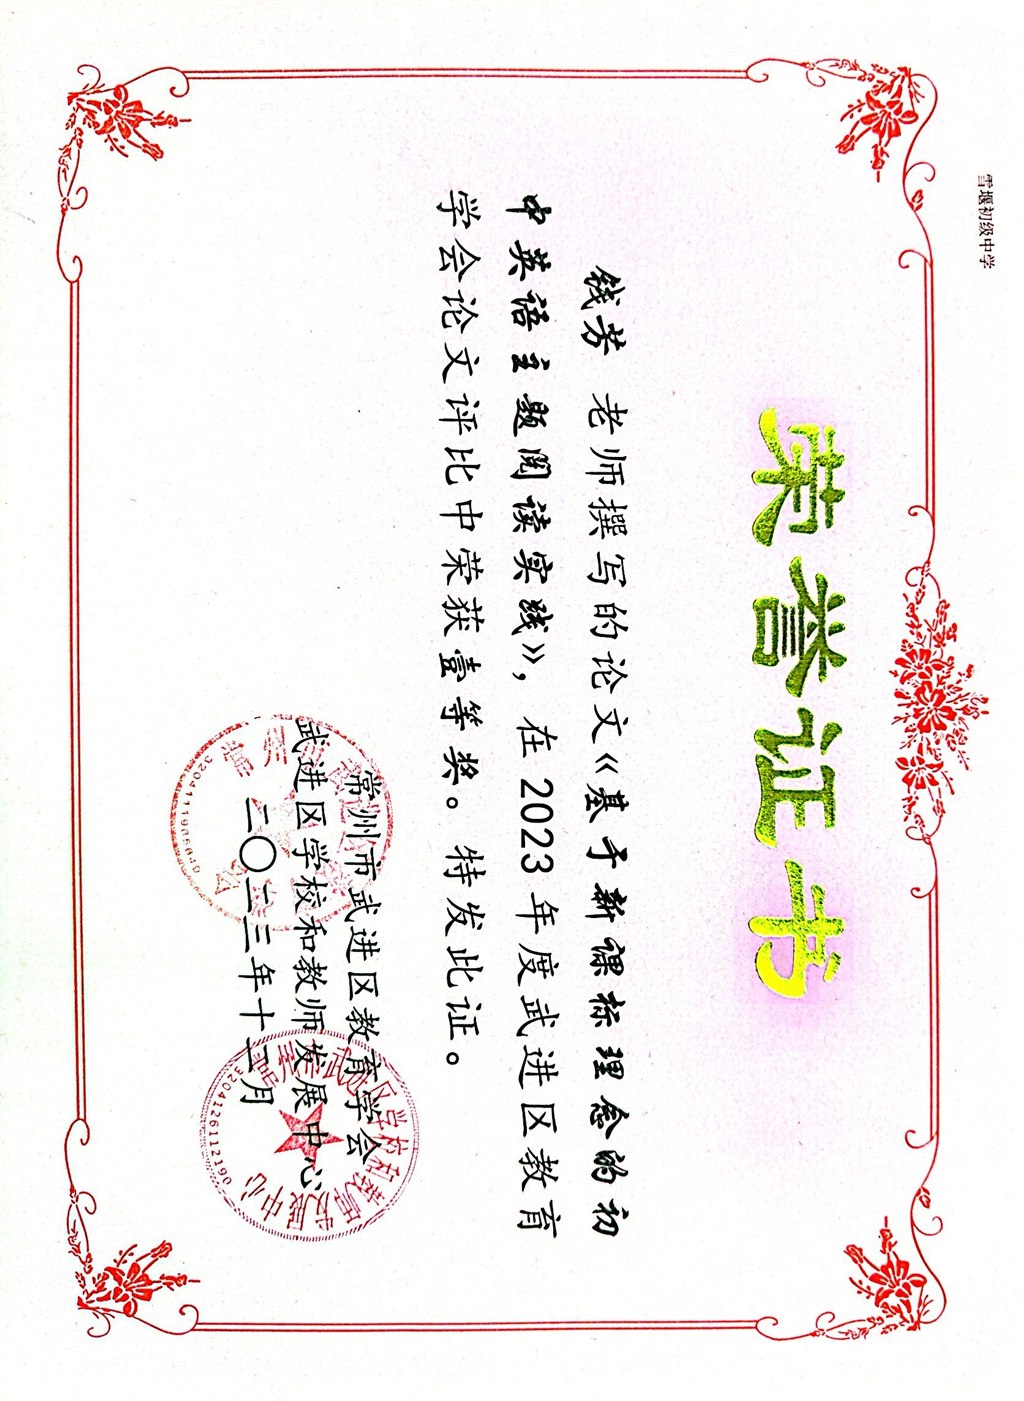 雪堰初级中学
荣誉证书
钱芳 老师撰写的论文《基于新课标理念的初
中英语主题阅读实践》，在2023年度武进区教育
学会论文评比中荣获壹等奖。特发此证。
常州市武进区教育学会
武进区学校和教师发展中心
二〇二三年十二月
3204126112190